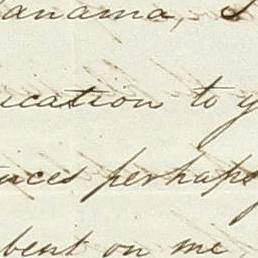 anama, S
ucation to y
nces perhaps
bent on me,